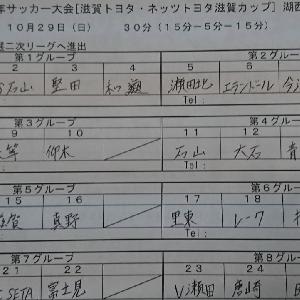 年サッカー大会[滋賀トヨタ・ネッツトヨタ滋賀カップ] 湖西
10月29日(日) 30分(15分-5分-15分)
二次リーグへ進出
第1グループ 第2グルー
2 3 4 5 6
石山 堅田 和邇 瀬田北 エラントドール
Tel:
第3グループ 第4グ
9 10 11 12
仰木 石山 大石 青
Tel:
第5グループ 第6グル
15 16 17 18
滋賀 真野 里東 レーク
Tel:
第7グループ 第8グルー
21 22 23 24
SETA 富士見 V瀬田 唐崎